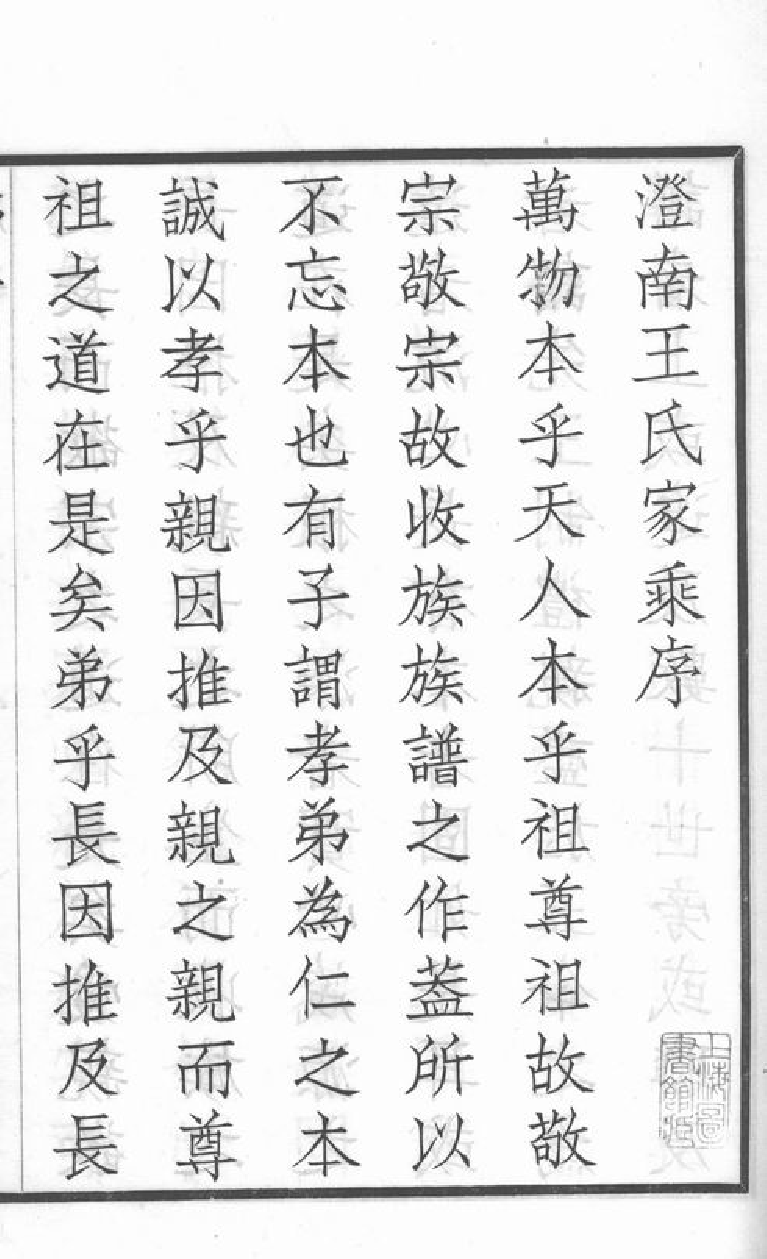 澄南王氏家乘序
萬物本乎天人本乎祖尊祖故敬
宗敬宗故收族族譜之作葢所以
不忘本也有子謂孝弟為仁之本
誠以孝乎親因推及親之親而尊
祖之道在是矣弟乎長因推及長
上海圖書館藏